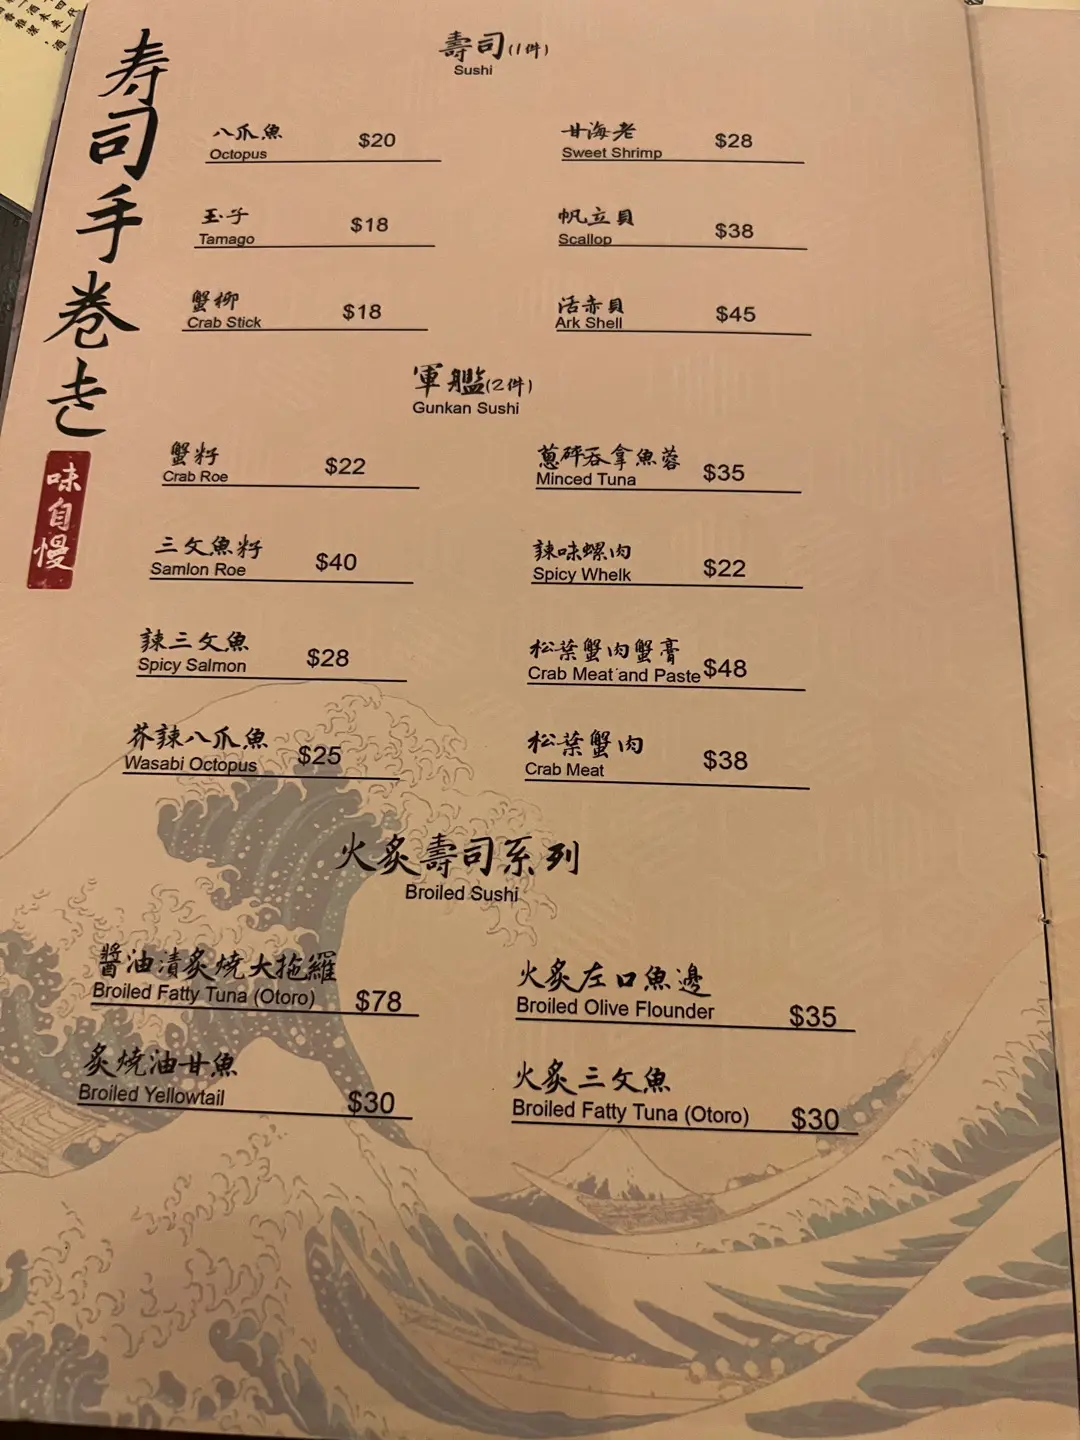 寿司手巻き
味自慢
壽司(1件)
Sushi
八爪魚 $20
Octopus
甘海老 $28
Sweet Shrimp
玉子 $18
Tamago
帆立貝 $38
Scallop
蟹柳 $18
Crab Stick
活赤貝 $45
Ark Shell
軍艦(2件)
Gunkan Sushi
蟹籽 $22
Crab Roe
蔥碎吞拿魚蓉 $35
Minced Tuna
三文魚籽 $40
Samlon Roe
辣味螺肉 $22
Spicy Whelk
辣三文魚 $28
Spicy Salmon
松葉蟹肉蟹膏 $48
Crab Meat and Paste
芥辣八爪魚 $25
Wasabi Octopus
松葉蟹肉 $38
Crab Meat
火炙壽司系列
Broiled Sushi
醬油漬炙燒大拖羅
Broiled Fatty Tuna (Otoro) $78
火炙左口魚邊
Broiled Olive Flounder $35
炙燒油甘魚
Broiled Yellowtail $30
火炙三文魚
Broiled Fatty Tuna (Otoro) $30